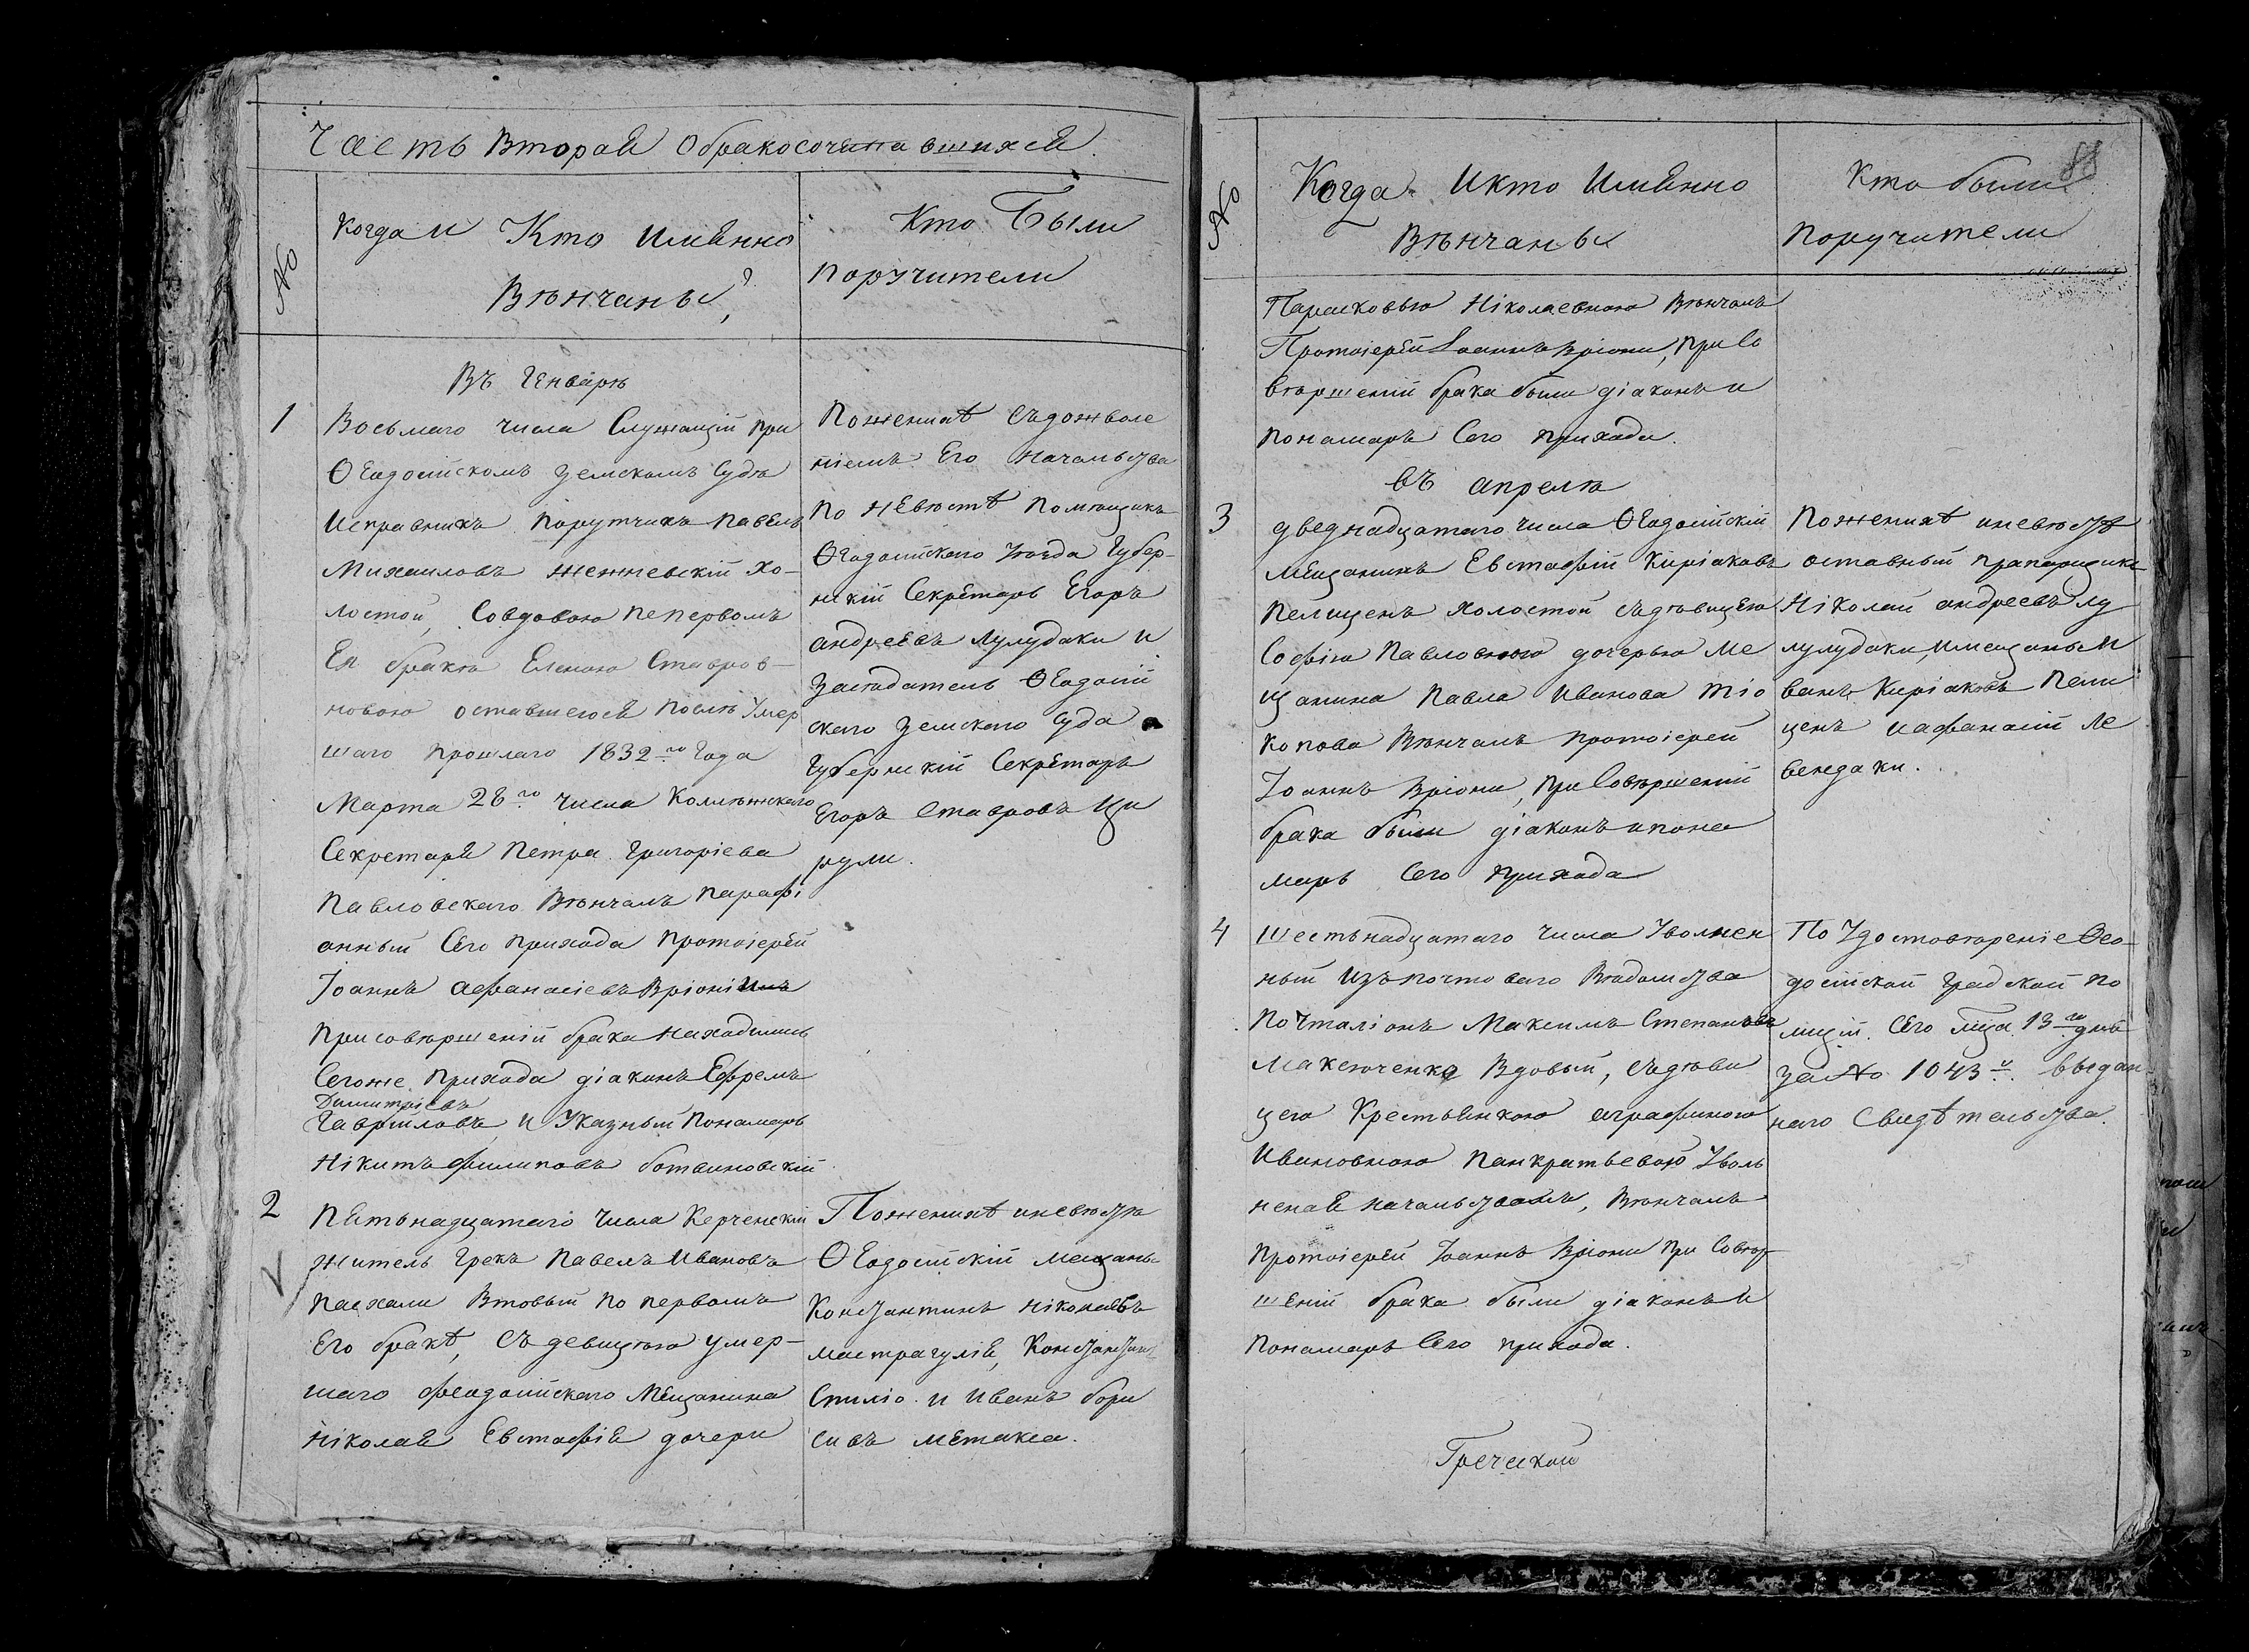 Часть Вторая обракосочетавшихся.
№
Когда и Кто имянно
Вѣнчаны,
Кто Были
поручители
Въ Генварѣ
1
Восьмаго числа Служащій при
Ѳеодосійскомъ Земскомъ Судѣ
Исправникъ порутчикъ Павелъ
Михаиловъ холостой
Совдовою по первомъ
Ея бракѣ Еленою Ставров-
новою оставшеюся послѣ умер
шаго прошлаго 1832го Года
Марта 28го числа Коллѣжскаго
Секретаря Петра Григоріева
Павловскаго Вѣнчалъ парафі
анный Сего прихода протоіерей
Іоаннъ Афанасіевъ Вріони
присовѣршеніи брака находились
Сегоже прихода діаконъ Ефремъ
Димитріевъ
Гавриловъ, и Указный Пономарь
Нікитъ Филиповъ ботвиновскій
Пожениху Съдозволе
ніемъ Его начальства
по невѣстѣ помѣщикъ
Ѳеодосійскаго Уѣзда Губер-
нскій Секретарь Егоръ
андреевъ Лулудаки и
Засѣдатель Ѳеодосій
скаго Земскаго Суда
Губернскій Секретарь
Егоръ Ставровъ Ци
рули.
2
Пятьнадцатаго числа Керченскій
житель Грекъ Павелъ Ивановъ
Пасхали Втовый по первомъ
Его бракѣ, Съ девицѣю умер-
шаго феодосійскаго Мещанина
Ніколая Евстафія дочери
Пожениху иневѣстѣ
Ѳеодосійскій мещанъ
Константинъ Ніколаевъ
мастрагулія, Константинъ
Стиліо и Иванъ бори
совъ метакса.
88
№
Когда Икто Имянно
Вѣнчаны
Кто были
поручители
Парасковью Ніколаевною Вѣнчалъ
Протоіерей Іоаннъ Вріони, при Со
вѣршеніи брака были діаконъ и
пономарь Сего прихода.
въ апрелѣ
3
дведнадцатаго числа Ѳеодосійскій
Мещанинъ Евстафій Киріаковъ
Пелицень холостой съдѣвицею
Софію Павловною дочерью Ме
щанина Павла Иванова тіо
копова Вѣнчалъ протоіерей
Іоаннъ Вріони, при Совѣршеніи
брака были діаконъ и поно
марь Сего прихода
Пожениху иневѣстѣ
оставный прапорщикъ
Ніколай андреевъ лу
лулудаки, имещаныи
ванъ Киріаковъ Пели
цень иафанасій ле
вендаки.
4
Шестьнадцатаго числа Уволнен
ный Изъпочтоваго Вѣдомства
Почталіонъ Максимъ Степановъ
Максюченко Вдовый, съдѣви
цею Крестьянкою аграфиною
Ивановною Панкратьевою Уволь
неная начальствомъ, Вѣнчалъ
протоіерей Іоаннъ Вріони при Совѣр-
шеніи брака были діаконъ и
пономарь Сего прихода.
По Удостовѣреніе Ѳео-
досійской Градской по
лиціи Сего мца 13го дня
за № 1043м выдан
наго Свидѣтельства.
Греческой